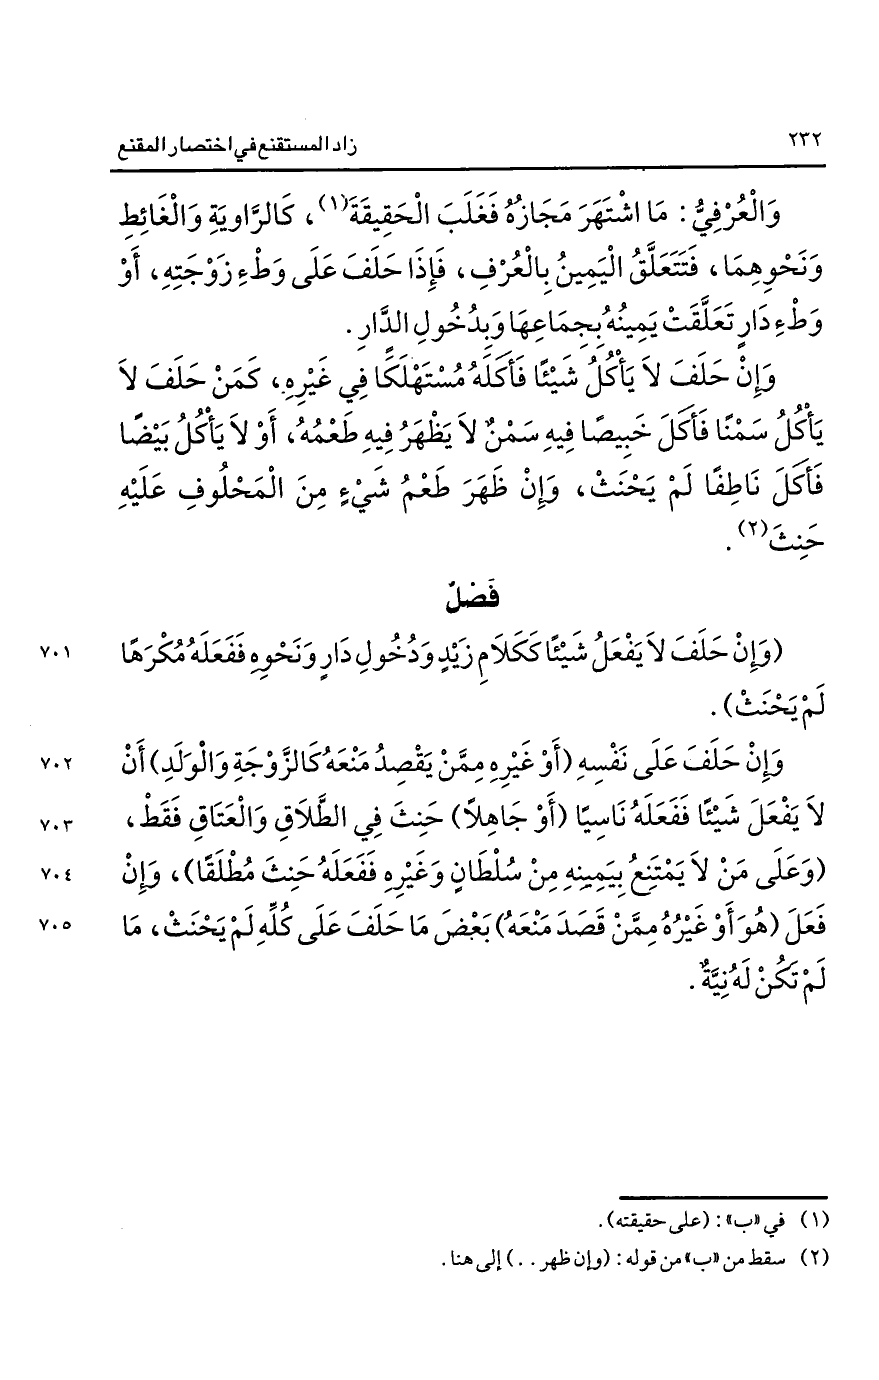 ٢٣٢
زاد المستقنع في اختصار المقنع
وَالْعُرْفِيُّ: مَا اشْتَهَرَ مَجَازُهُ فَغَلَبَ الْحَقِيقَةَ(١)، كَالرَّاوِيَةِ وَالْغَائِطِ
وَنَحْوِهِمَا، فَتَتَعَلَّقُ الْيَمِينُ بِالْعُرْفِ، فَإِذَا حَلَفَ عَلَى وَطْءِ زَوْجَتِهِ، أَوْ
وَطْءِ دَارٍ تَعَلَّقَتْ يَمِينُهُ بِجِمَاعِهَا وَبِدُخُولِ الدَّارِ.
وَإِنْ حَلَفَ لاَ يَأْكُلُ شَيْئًا فَأَكَلَهُ مُسْتَهْلَكًا فِي غَيْرِهِ، كَمَنْ حَلَفَ لاَ
يَأْكُلُ سَمْنًا فَأَكَلَ خَبِيصًا فِيهِ سَمْنٌ لاَ يَظْهَرُ فِيهِ طَعْمُهُ، أَوْ لاَ يَأْكُلُ بَيْضًا
فَأَكَلَ نَاطِفًا لَمْ يَحْنَثْ، وَإِنْ ظَهَرَ طَعْمُ شَيْءٍ مِنَ الْمَحْلُوفِ عَلَيْهِ
حَنِثَ(٢).
فَصْلٌ
(وَإِنْ حَلَفَ لاَ يَفْعَلُ شَيْئًا كَكَلاَمِ زَيْدٍ وَدُخُولِ دَارٍ وَنَحْوِهِ فَفَعَلَهُ مُكْرَهًا ٧٠١
لَمْ يَحْنَثْ).
وَإِنْ حَلَفَ عَلَى نَفْسِهِ (أَوْ غَيْرِهِ مِمَّنْ يَقْصِدُ مَنْعَهُ كَالزَّوْجَةِ وَالْوَلَدِ) أَنْ ٧٠٢
لاَ يَفْعَلَ شَيْئًا فَفَعَلَهُ نَاسِيًا (أَوْ جَاهِلاً) حَنِثَ فِي الطَّلاَقِ وَالْعَتَاقِ فَقَطْ، ٧٠٣
(وَعَلَى مَنْ لاَ يَمْتَنِعُ بِيَمِينِهِ مِنْ سُلْطَانٍ وَغَيْرِهِ فَفَعَلَهُ حَنِثَ مُطْلَقًا)، وَإِنْ ٧٠٤
فَعَلَ (هُوَ أَوْ غَيْرُهُ مِمَّنْ قَصَدَ مَنْعَهُ) بَعْضَ مَا حَلَفَ عَلَى كُلِّهِ لَمْ يَحْنَثْ، مَا ٧٠٥
لَمْ تَكُنْ لَهُ نِيَّةٌ.
(١) في «ب»: (على حقيقته).
(٢) سقط من «ب» من قوله: (وإن ظهر . .) إلى هنا.